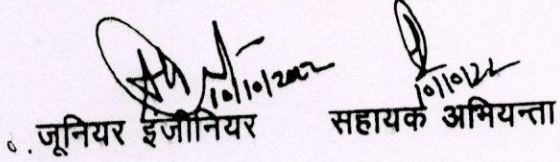 10/10/2022 10/10/22
जूनियर इंजीनियर सहायक अभियन्ता